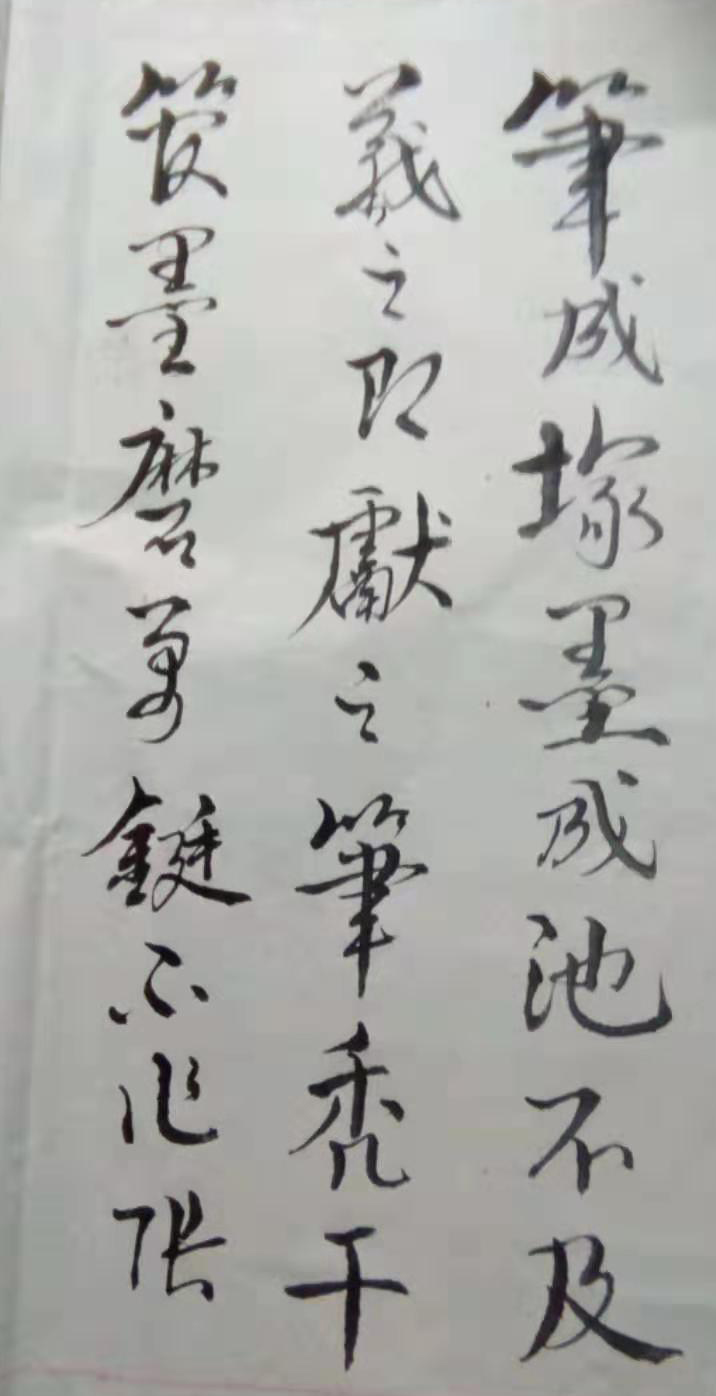 筆成塚墨成池不及
羲之即獻之筆秃千
管墨磨萬鋌不作張